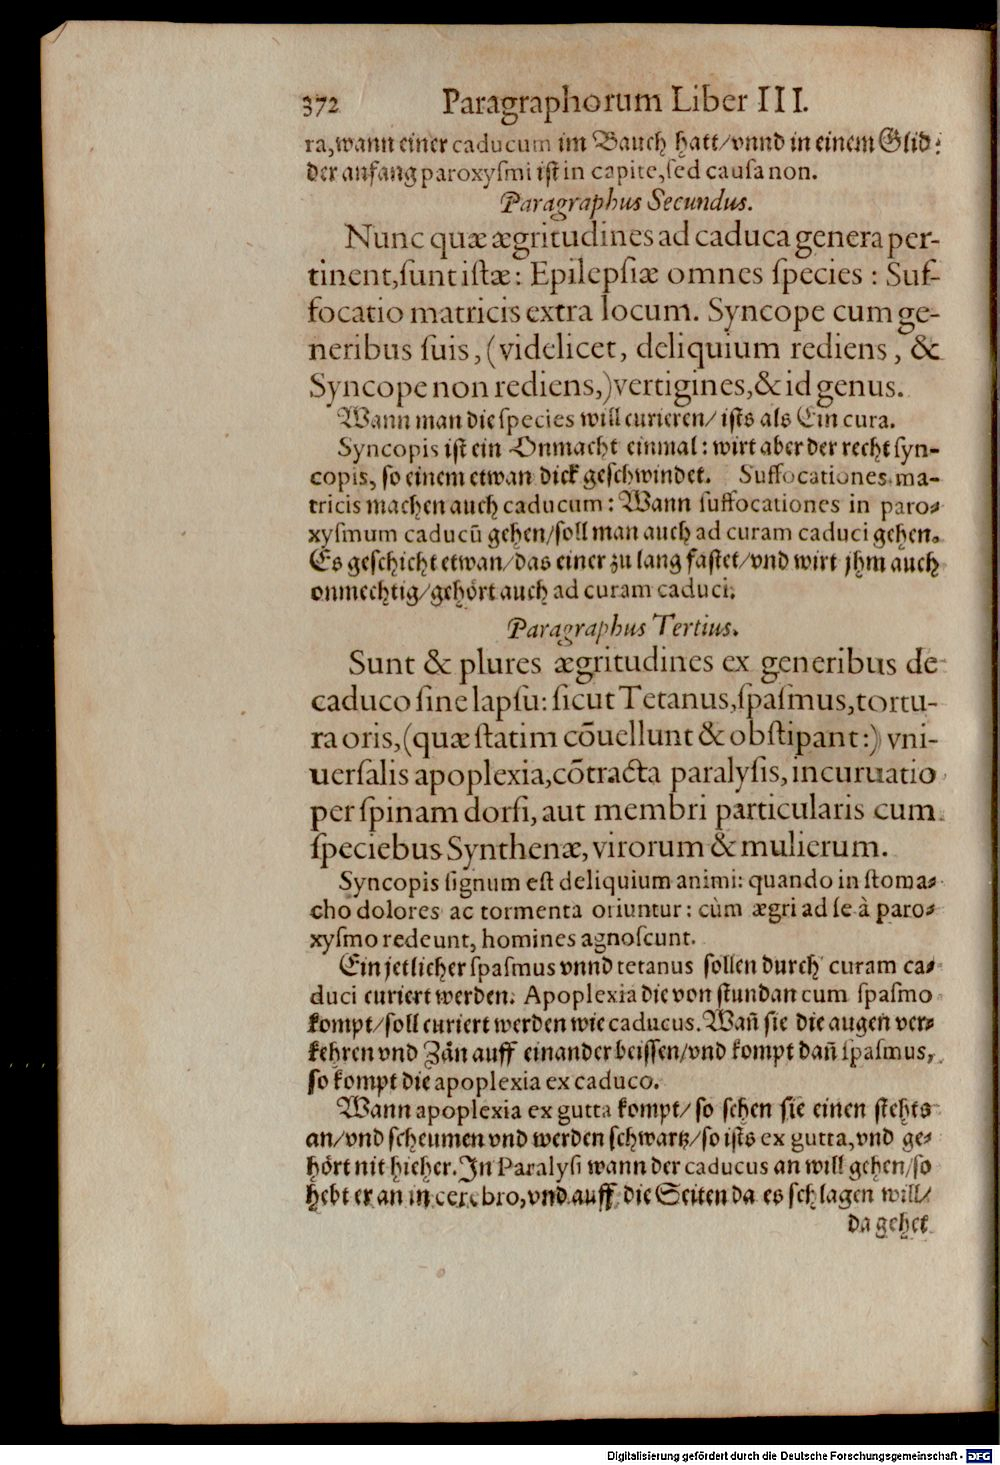 372 Paragraphorum Liber III.
ra, wann einer caducum im Bauch hatt/ vnnd in einem Glid:
der anfang paroxysmi ist in capite, sed causa non.
Paragraphus Secundus.
Nunc quæ ægritudines ad caduca genera per-
tinent, sunt istæ: Epilepsiæ omnes species: Suf-
focatio matricis extra locum. Syncope cum ge-
neribus suis, (videlicet, deliquium rediens, &
Syncope non rediens,) vertigines, & id genus.
Wann man die species will curieren/ ists als Ein cura.
Syncopis ist ein Onmacht einmal: wirt aber der recht syn-
copis, so einem etwan dick geschwindet. Suffocationes ma-
tricis machen auch caducum: Wann suffocationes in paro-
xysmum caducū gehen/ soll man auch ad curam caduci gehen.
Es geschicht etwan/ das einer zu lang fastet/ vnd wirt jhm auch
onmechtig/ gehört auch ad curam caduci.
Paragraphus Tertius.
Sunt & plures ægritudines ex generibus de
caduco sine lapsu: sicut Tetanus, spasmus, tortu-
ra oris, (quæ statim cōuellunt & obstipant:) vni-
uersalis apoplexia, cōtracta paralysis, incuruatio
per spinam dorsi, aut membri particularis cum
speciebus Synthenæ, virorum & mulierum.
Syncopis signum est deliquium animi: quando in stoma-
cho dolores ac tormenta oriuntur: cùm ægri ad se à paro-
xysmo redeunt, homines agnoscunt.
Ein jetlicher spasmus vnnd tetanus sollen durch curam ca-
duci curiert werden. Apoplexia die von stundan cum spasmo
kompt/ soll curiert werden wie caducus. Wañ sie die augen ver-
kehren vnd Zän auff einander beissen/ vnd kompt dañ spasmus,
so kompt die apoplexia ex caduco.
Wann apoplexia ex gutta kompt/ so sehen sie einen stehts
an/ vnd scheumen vnd werden schwartz/ so ists ex gutta, vnd ge-
hört nit hieher. In Paralysi wann der caducus an will gehen/ so
hebt er an in cerebro, vnd auff die Seiten da es schlagen will/
da gehet
Digitalisierung gefördert durch die Deutsche Forschungsgemeinschaft - DFG